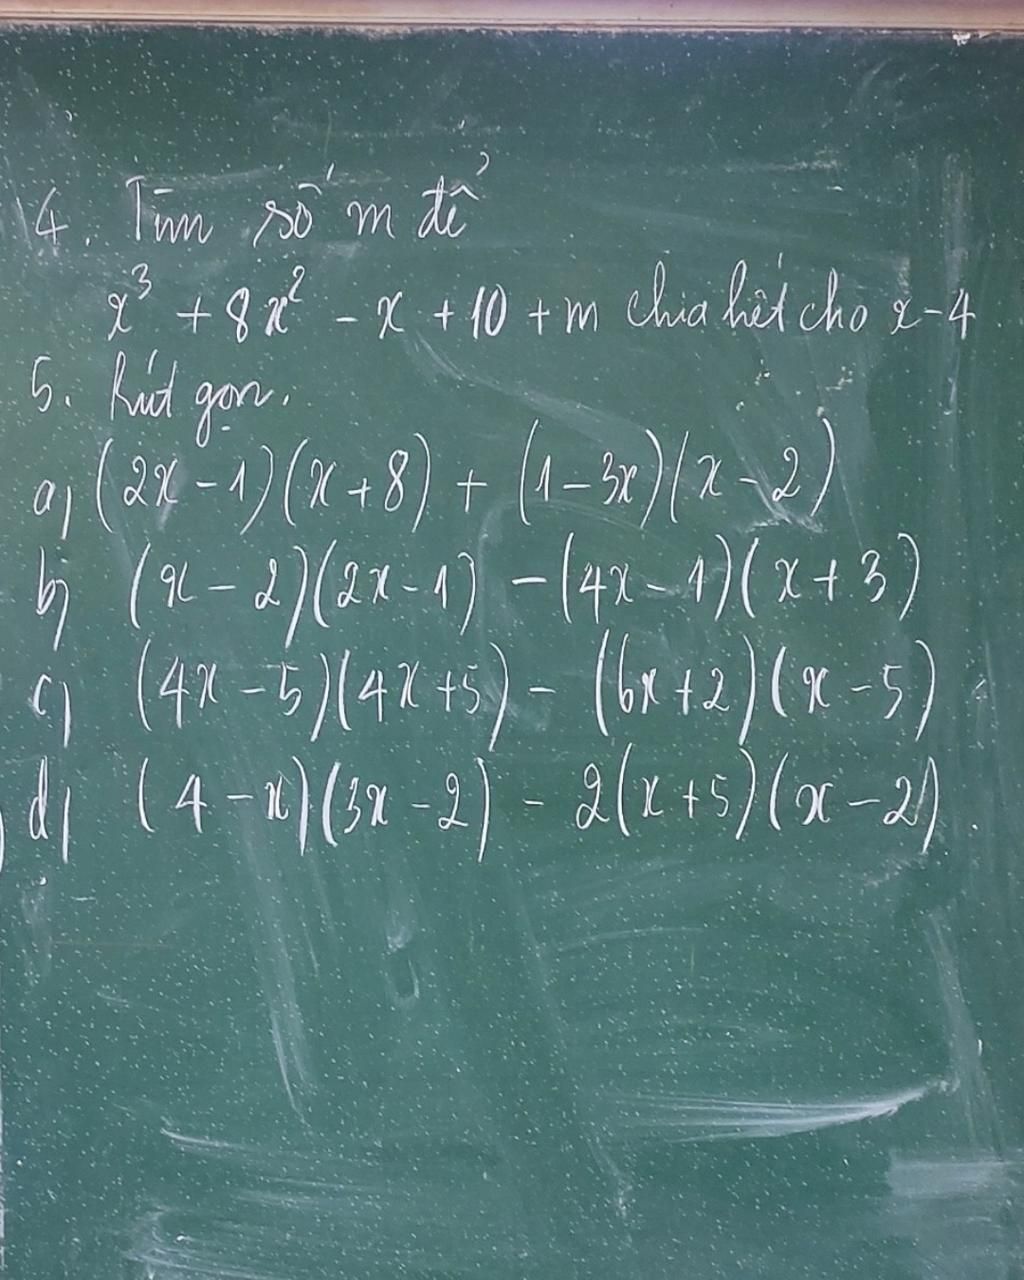 4. Tìm số m để
x³ + 8x² - x + 10 + m chia hết cho x-4
5. Rút gọn.
a) (2x - 1)(x + 8) + (1 - 3x)(x - 2)
b) (x - 2)(2x - 1) - (4x - 1)(x + 3)
c) (4x - 5)(4x + 5) - (6x + 2)(x - 5)
d) (4 - x)(3x - 2) - 2(x + 5)(x - 2).